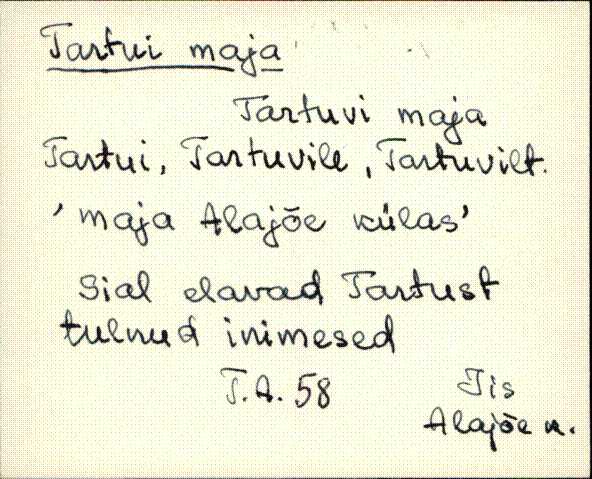 Tartui maja
Tartuvi maja
Tartui, Tartuvile, Tartuvilt.
'maja Alajõe külas'
Sial elavad Tartust
tulnud inimesed
T.A. 58 Iis
Alajõe k.